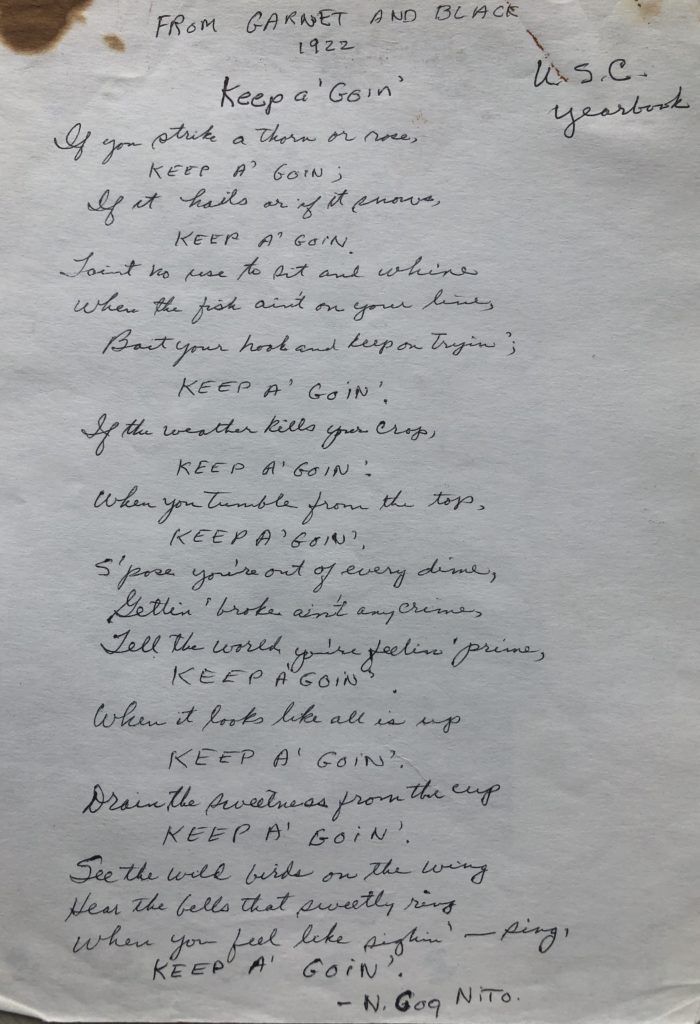 FROM GARNET AND BLACK
1922
U.S.C.
yearbook
Keep a' Goin'
If you strike a thorn or rose,
KEEP A' GOIN;
If it hails or if it snows,
KEEP A' GOIN.
Taint no use to sit and whine
When the fish ain't on your line,
Bait your hook and keep on Tryin';
KEEP A' GOIN'.
If the weather kills your crop,
KEEP A' GOIN'.
When you tumble from the top,
KEEP A' GOIN'.
S'pose you're out of every dime,
Gettin' broke ain't any crime,
Tell the world you're feelin' prime,
KEEP A' GOIN'.
When it looks like all is up
KEEP A' GOIN'.
Drain the sweetness from the cup
KEEP A' GOIN'.
See the wild birds on the wing
Hear the bells that sweetly ring
When you feel like sighin' — sing,
KEEP A' GOIN'.
- N. Cog NITO.